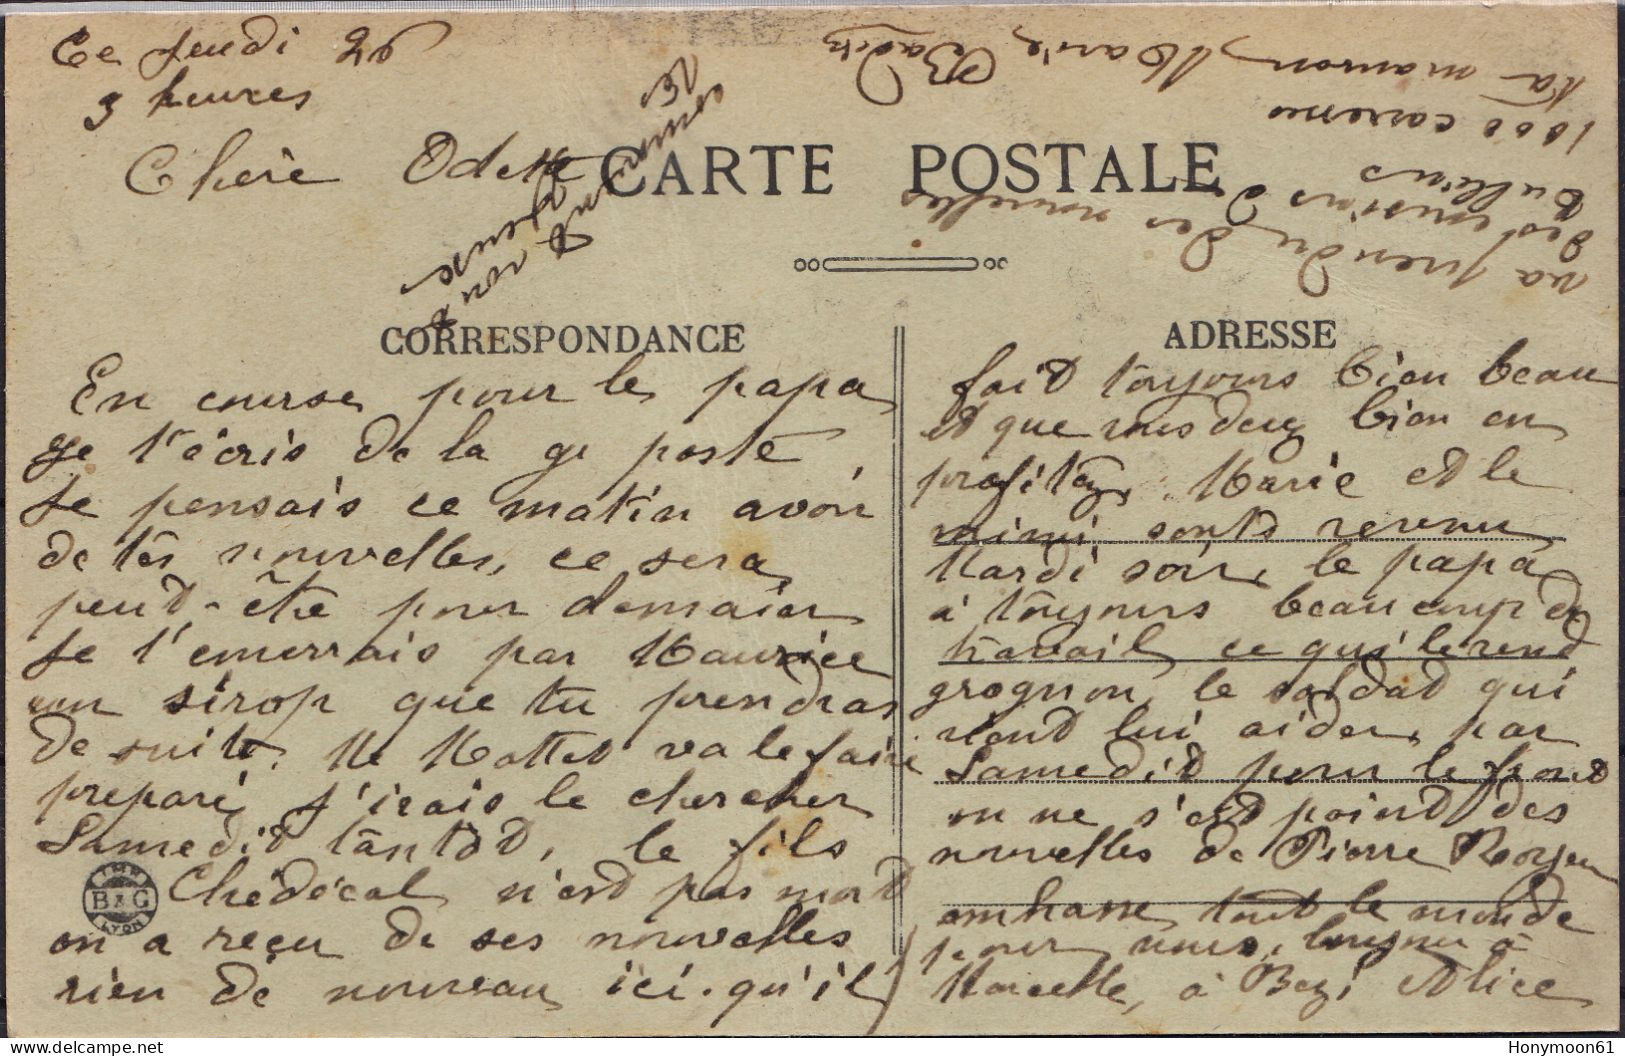 Ce Jeudi 26
3 heures
Chère Odette
CARTE POSTALE
CORRESPONDANCE
En course pour le papa
je t'écris de la gr poste
Je pensais ce matin avoir
de tes nouvelles, ce sera
peut-être pour demain
Je t'enverrais par Maurice
un sirop que tu prendras
de suite. Me Mottet va le faire
preparé, j'irais le chercher
Samedit tantot, le fils
Chédécal n'est pas mort
on a reçu de ses nouvelles
rien de nouveau ici. qu'il
IMP.
B & G
LYON
ADRESSE
fait toujours bien beau
et que vous deux bien en
profitez, Marie et le
mimi sonts revenu
Mardi soir, le papa
à toujours beaucoup de
travail ce qui le rend
grognon, le soldat qui
vient lui aider, par
Samedit pour le front
on ne s'est point des
nouvelles de Pierre
embrasse tout le monde
pour nous, à
Marcelle, à Alice
va prendre des nouvelles
des
1000
ta maman, Marie
Honymoon61